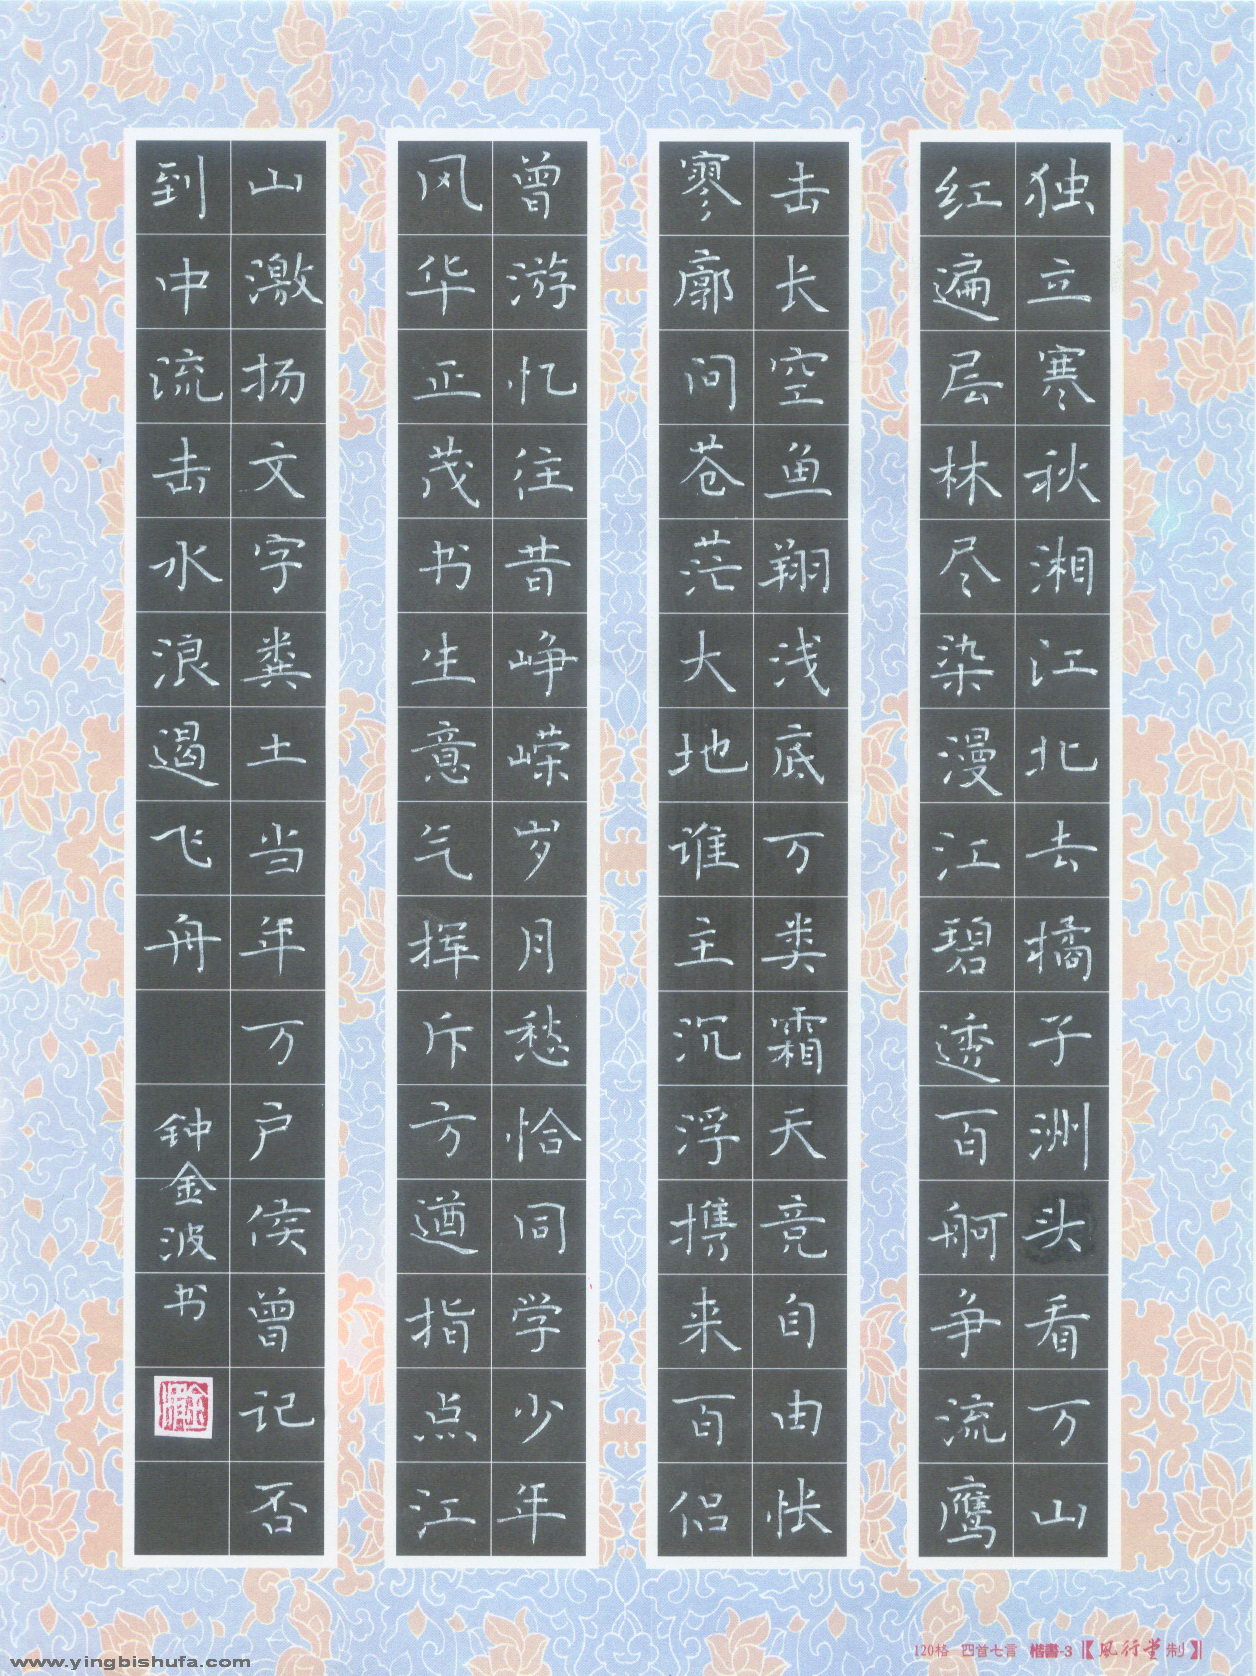 独立寒秋湘江北去橘子洲头看万山
红遍层林尽染漫江碧透百舸争流鹰
击长空鱼翔浅底万类霜天竟自由怅
寥廓问苍茫大地谁主沉浮携来百侣
曾游忆往昔峥嵘岁月愁恰同学少年
风华正茂书生意气挥斥方遒指点江
山激扬文字粪土当年万户侯曾记否
到中流击水浪遏飞舟 钟金波书
120格 四首七言 楷書-3【風行堂制】
www.yingbishufa.com